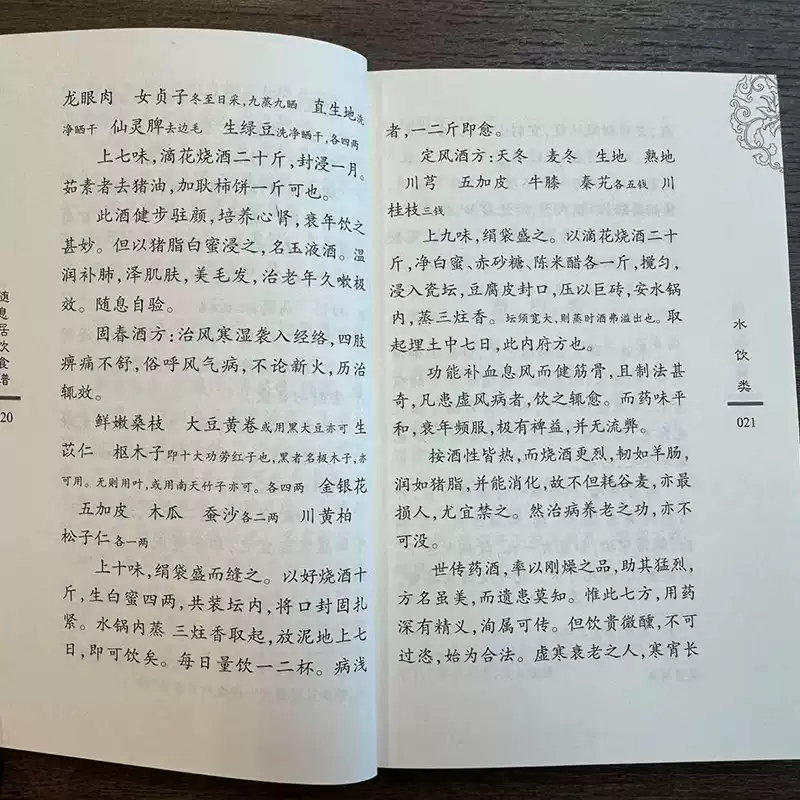 龙眼肉　女贞子冬至日采，九蒸九晒　直生地洗
净晒干　仙灵脾去边毛　生绿豆洗净晒干，各四两
上七味，滴花烧酒二十斤，封浸一月。
茹素者去猪油，加耿柿饼一斤可也。
此酒健步驻颜，培养心肾，衰年饮之
甚妙。但以猪脂白蜜浸之，名玉液酒。温
润补肺，泽肌肤，美毛发，治老年久嗽极
效。随息自验。
固春酒方：治风寒湿袭入经络，四肢
痹痛不舒，俗呼风气病，不论新火，历治
辄效。
鲜嫩桑枝　大豆黄卷或用黑大豆亦可生
苡仁　枢木子即十大功劳红子也，黑者名极木子，亦
可用。无则用叶，或用南天竹子亦可。各四两　金银花
五加皮　木瓜　蚕沙各二两　川黄柏
松子仁各一两
上十味，绢袋盛而缝之。以好烧酒十
斤，生白蜜四两，共装坛内，将口封固扎
紧。水锅内蒸 三炷香取起，放泥地上七
日，即可饮矣。每日量饮一二杯。病浅
随息居饮食谱
20
者，一二斤即愈。
定风酒方：天冬　麦冬　生地　熟地
川芎　五加皮　牛膝　秦艽各五钱　川
桂枝三钱
上九味，绢袋盛之。以滴花烧酒二十
斤，净白蜜、赤砂糖、陈米醋各一斤，搅匀，
浸入瓷坛，豆腐皮封口，压以巨砖，安水锅
内，蒸三炷香。坛须宽大，则蒸时酒弗溢出也。取
起埋土中七日，此内府方也。
功能补血息风而健筋骨，且制法甚
奇，凡患虚风病者，饮之辄愈。而药味平
和，衰年频服，极有裨益，并无流弊。
按酒性皆热，而烧酒更烈，韧如羊肠，
润如猪脂，并能消化，故不但耗谷麦，亦最
损人，尤宜禁之。然治病养老之功，亦不
可没。
世传药酒，率以刚燥之品，助其猛烈，
方名虽美，而遗患莫知。惟此七方，用药
深有精义，洵属可传。但饮贵微醺，不可
过恣，始为合法。虚寒衰老之人，寒宵长
水饮类
021